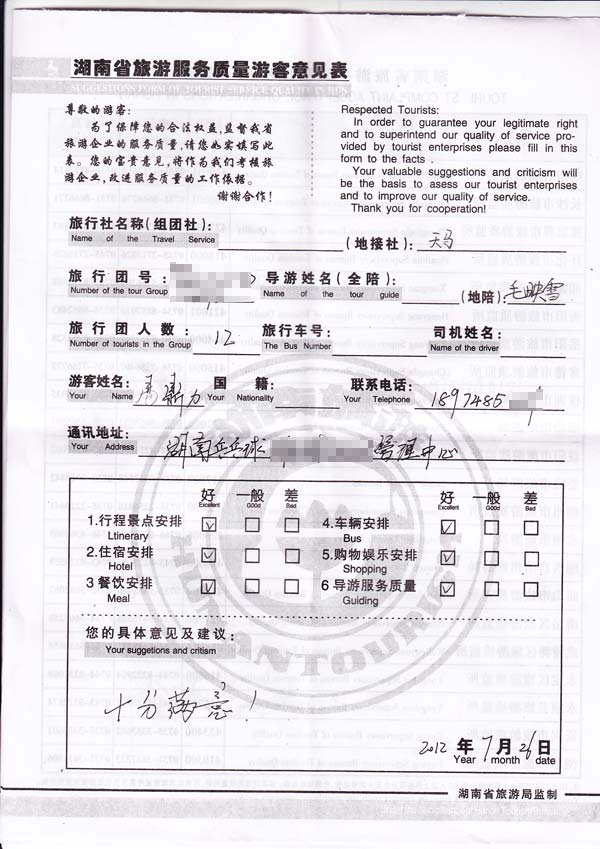 湖南省旅游服务质量游客意见表
SUGGESTIONS FORM OF TOURIST SERVICE QUALITY IN HUN
尊敬的游客：
为了保障您的合法权益,监督我省
旅游企业的服务质量,请您如实填写此
表。您的宝贵意见,将作为我们考核旅
游企业,改进服务质量的工作依据。
谢谢合作！
Respected Tourists:
In order to guarantee your legitimate right
and to superintend our quality of service pro-
vided by tourist enterprises please fill in this
form to the facts .
Your valuable suggestions and criticism will
be the basis to asess our tourist enterprises
and to improve our quality of service.
Thank you for cooperation!
旅行社名称(组团社): (地接社): 天马
Name of the Travel Service
旅行团号: 导游姓名(全陪): (地陪) 毛映雪
Number of the tour Group Name of the tour guide
旅行团人数: 12 旅行车号: 司机姓名:
Number of tourists in the Group The Bus Number Name of the driver
游客姓名: 力 国籍: 联系电话: 1897485
Your Name Your Nationality Your Telephone
通讯地址: 湖南乒乓球 管理中心
Your Address
好 一般 差 好 一般 差
Excellent Good Bad Excellent Good Bad
1.行程景点安排 4.车辆安排
Ltinerary Bus
2.住宿安排 5.购物娱乐安排
Hotel Shopping
3 餐饮安排 6 导游服务质量
Meal Guiding
HUNAN TOURISM
您的具体意见及建议:
Your suggetions and critism
十分满意！
2012 年 7 月 26 日
Year month date
湖南省旅游局监制